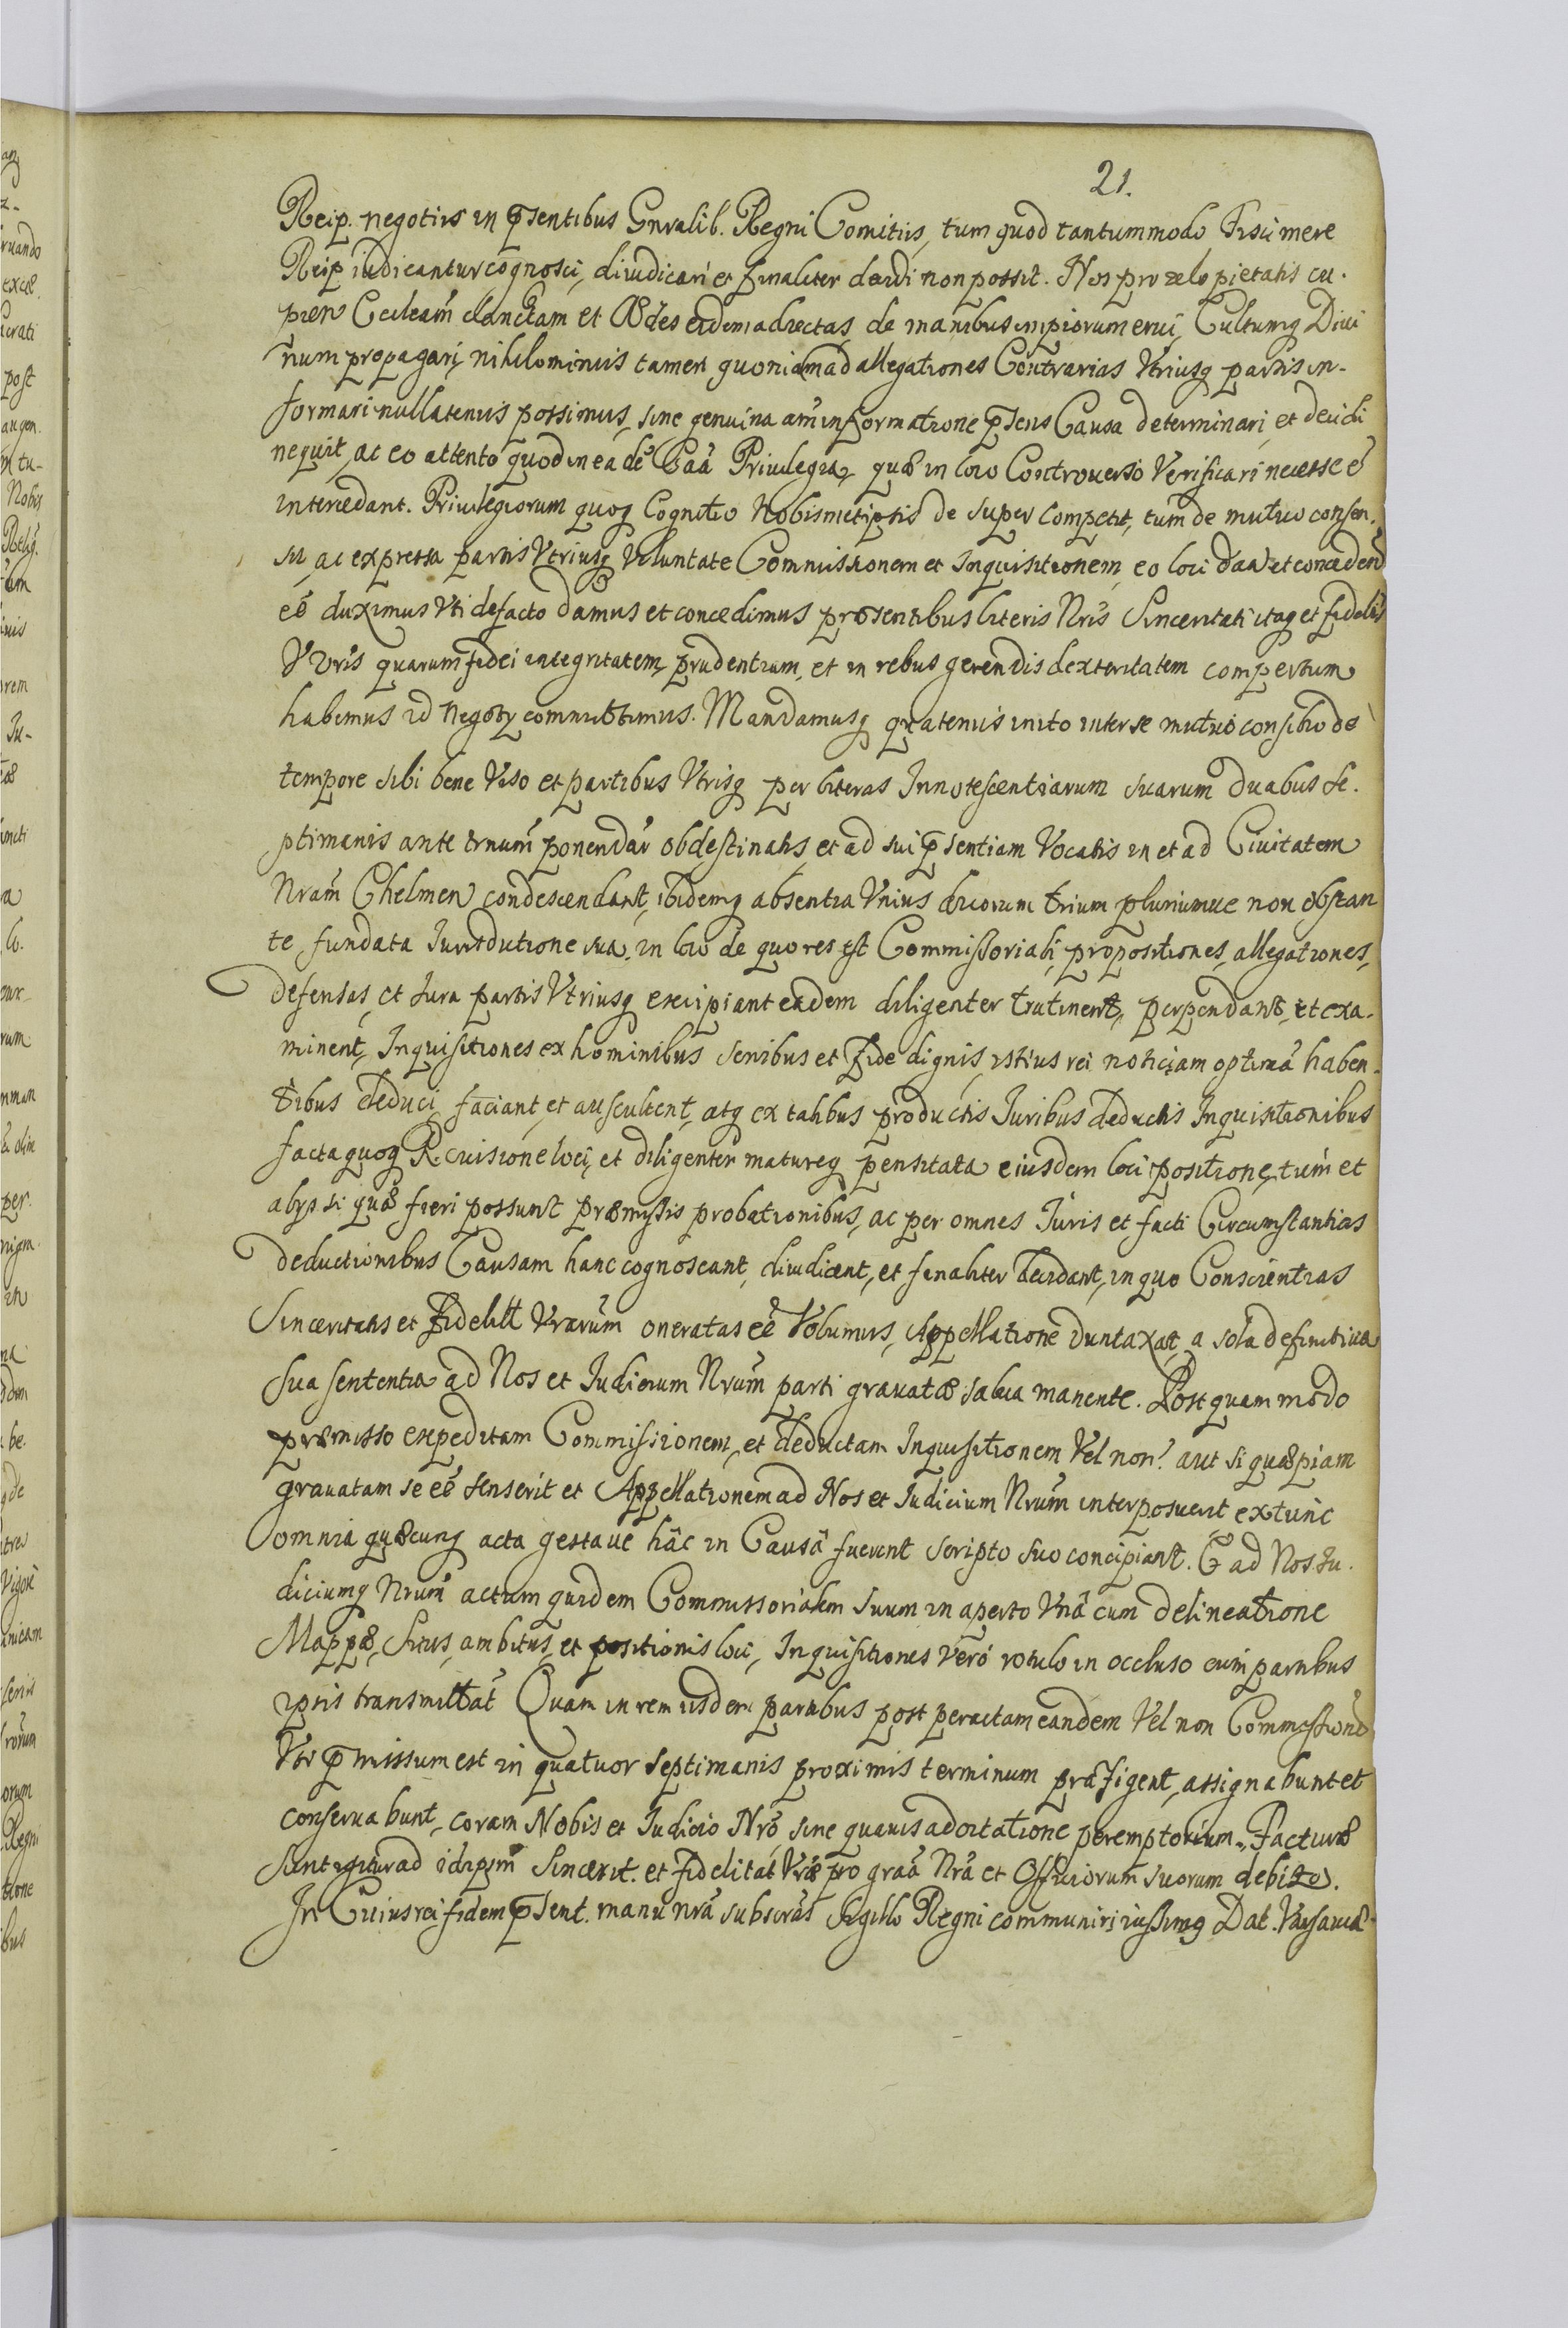 21.
Reip. negotiis in p̄sentibus Gnralib. Regni Comitiis, tum quod tantummodo Fisci mere
Reip iudicantur cognosci, diiudicari et finaliter decidi non possit. Nos pro zelo pietatis cu-
pien Eccleam̃ Sanctam et Ædes eidem adiectas, de manibus impiorum erui, Cultumq Diui
num propagari, nihilominus tamen quoniam ad allegationes Contrarias Vtriusq partis in-
formari nullatenus possimus, sine genuina aut̃ informatione p̄sens Causa determinari, et decidi
nequit, ac eo attento quod in eadē Caã Priuilegia, quæ in loco Controuerso Verificari necesse ē
intercedant. Priuilegiorum quoq Cognitio Nobismetipsis de super competit, tum de mutuo consen-
su, ac expressa partis Vtriusq Voluntate Commissionem et Inquisitionem, eo loci dan et conceden
eē duximus Vti defacto damus et concedimus præsentibus literis Nris Sinceritati itaq et fidelit
V Vris quarum fidei integritatem, prudentiam, et in rebus gerendis dexteritatem compertum
habemus id Negoty committimus. Mandamusq quatenus inito inter se mutuo consilio de
tempore sibi bene Viso et partibus Vtrisq per literas Innotescentiarum suarum duabus se-
ptimanis ante trnum ponendar obdestinatis, et ad sui p̄sentiam Vocatis in et ad Ciuitatem
Nram̃ Chelmen condescendant, ibidemq absentia Vnius duorum trium pluriumue non obstan
te, fundata Iurisdictione sua, in loco de quo res est Commissoriali, propositiones, allegationes,
defensas, et Iura partis Vtriusq excipiant eadem diligenter trutinent, perpendant, et exa-
minent, Inquisitiones ex hominibus senibus et fide dignis, istius rei noticiam optimã haben-
tibus deduci, faciant, et auscultent, atq ex talibus productis Iuribus deductis Inquisitionibus
facta quoq Reuisione loci, et diligenter matureq pensitata eiusdem loci positione, tum et
alys si quæ fieri possunt præmissis probationibus, ac per omnes Iuris et facti Circumstantias
deductionibus Causam hanc cognoscant, diiudicent, et finaliter decidant, in quo Conscientias
Sinceritatis et Fidelitt Vrarum̃ oneratas eē Volumus, Appellatione duntaxat, a sola definitiua
sua sententia ad Nos et Iudicium Nrum̃ parti grauatæ salua manente. Post quam modo
præmisso expeditam Commissionem, et deductam Inquisitionem Vel non? aut si quæpiam
grauatam se eē senserit et Appellationem ad Nos et Iudicium Nrum̃ interposuerit extunc
omnia quæcunq acta gestaue hâc in Causâ fuerint scripto suo concipiant. Et ad Nos Iu-
diciumq Nrum̃ actum quidem Commissorialem suum in aperto Vnâ cum delineatione
Mappæ, situs, ambitus, et positionis loci, Inquisitiones Verò rotulo in occluso cum partibus
ipsis transmittãt Quam in rem iisdem partibus post peractam eandem Vel non Commissionē
Vti p̄missum est in quatuor septimanis proximis terminum præfigent, assignabunt et
conseruabunt, coram Nobis et Iudicio Nrõ sine quauis adcitatione peremptorium. Facturæ
sunt igitur ad idipsm̃ Sincerit. et Fidelitat Vræ pro graã Nrã et Officiorum suorum debito.
In Cuius rei fidem p̄sent. manu nrã subscrãs Sigillo Regni communiri iussimq Dat. Varsauiæ